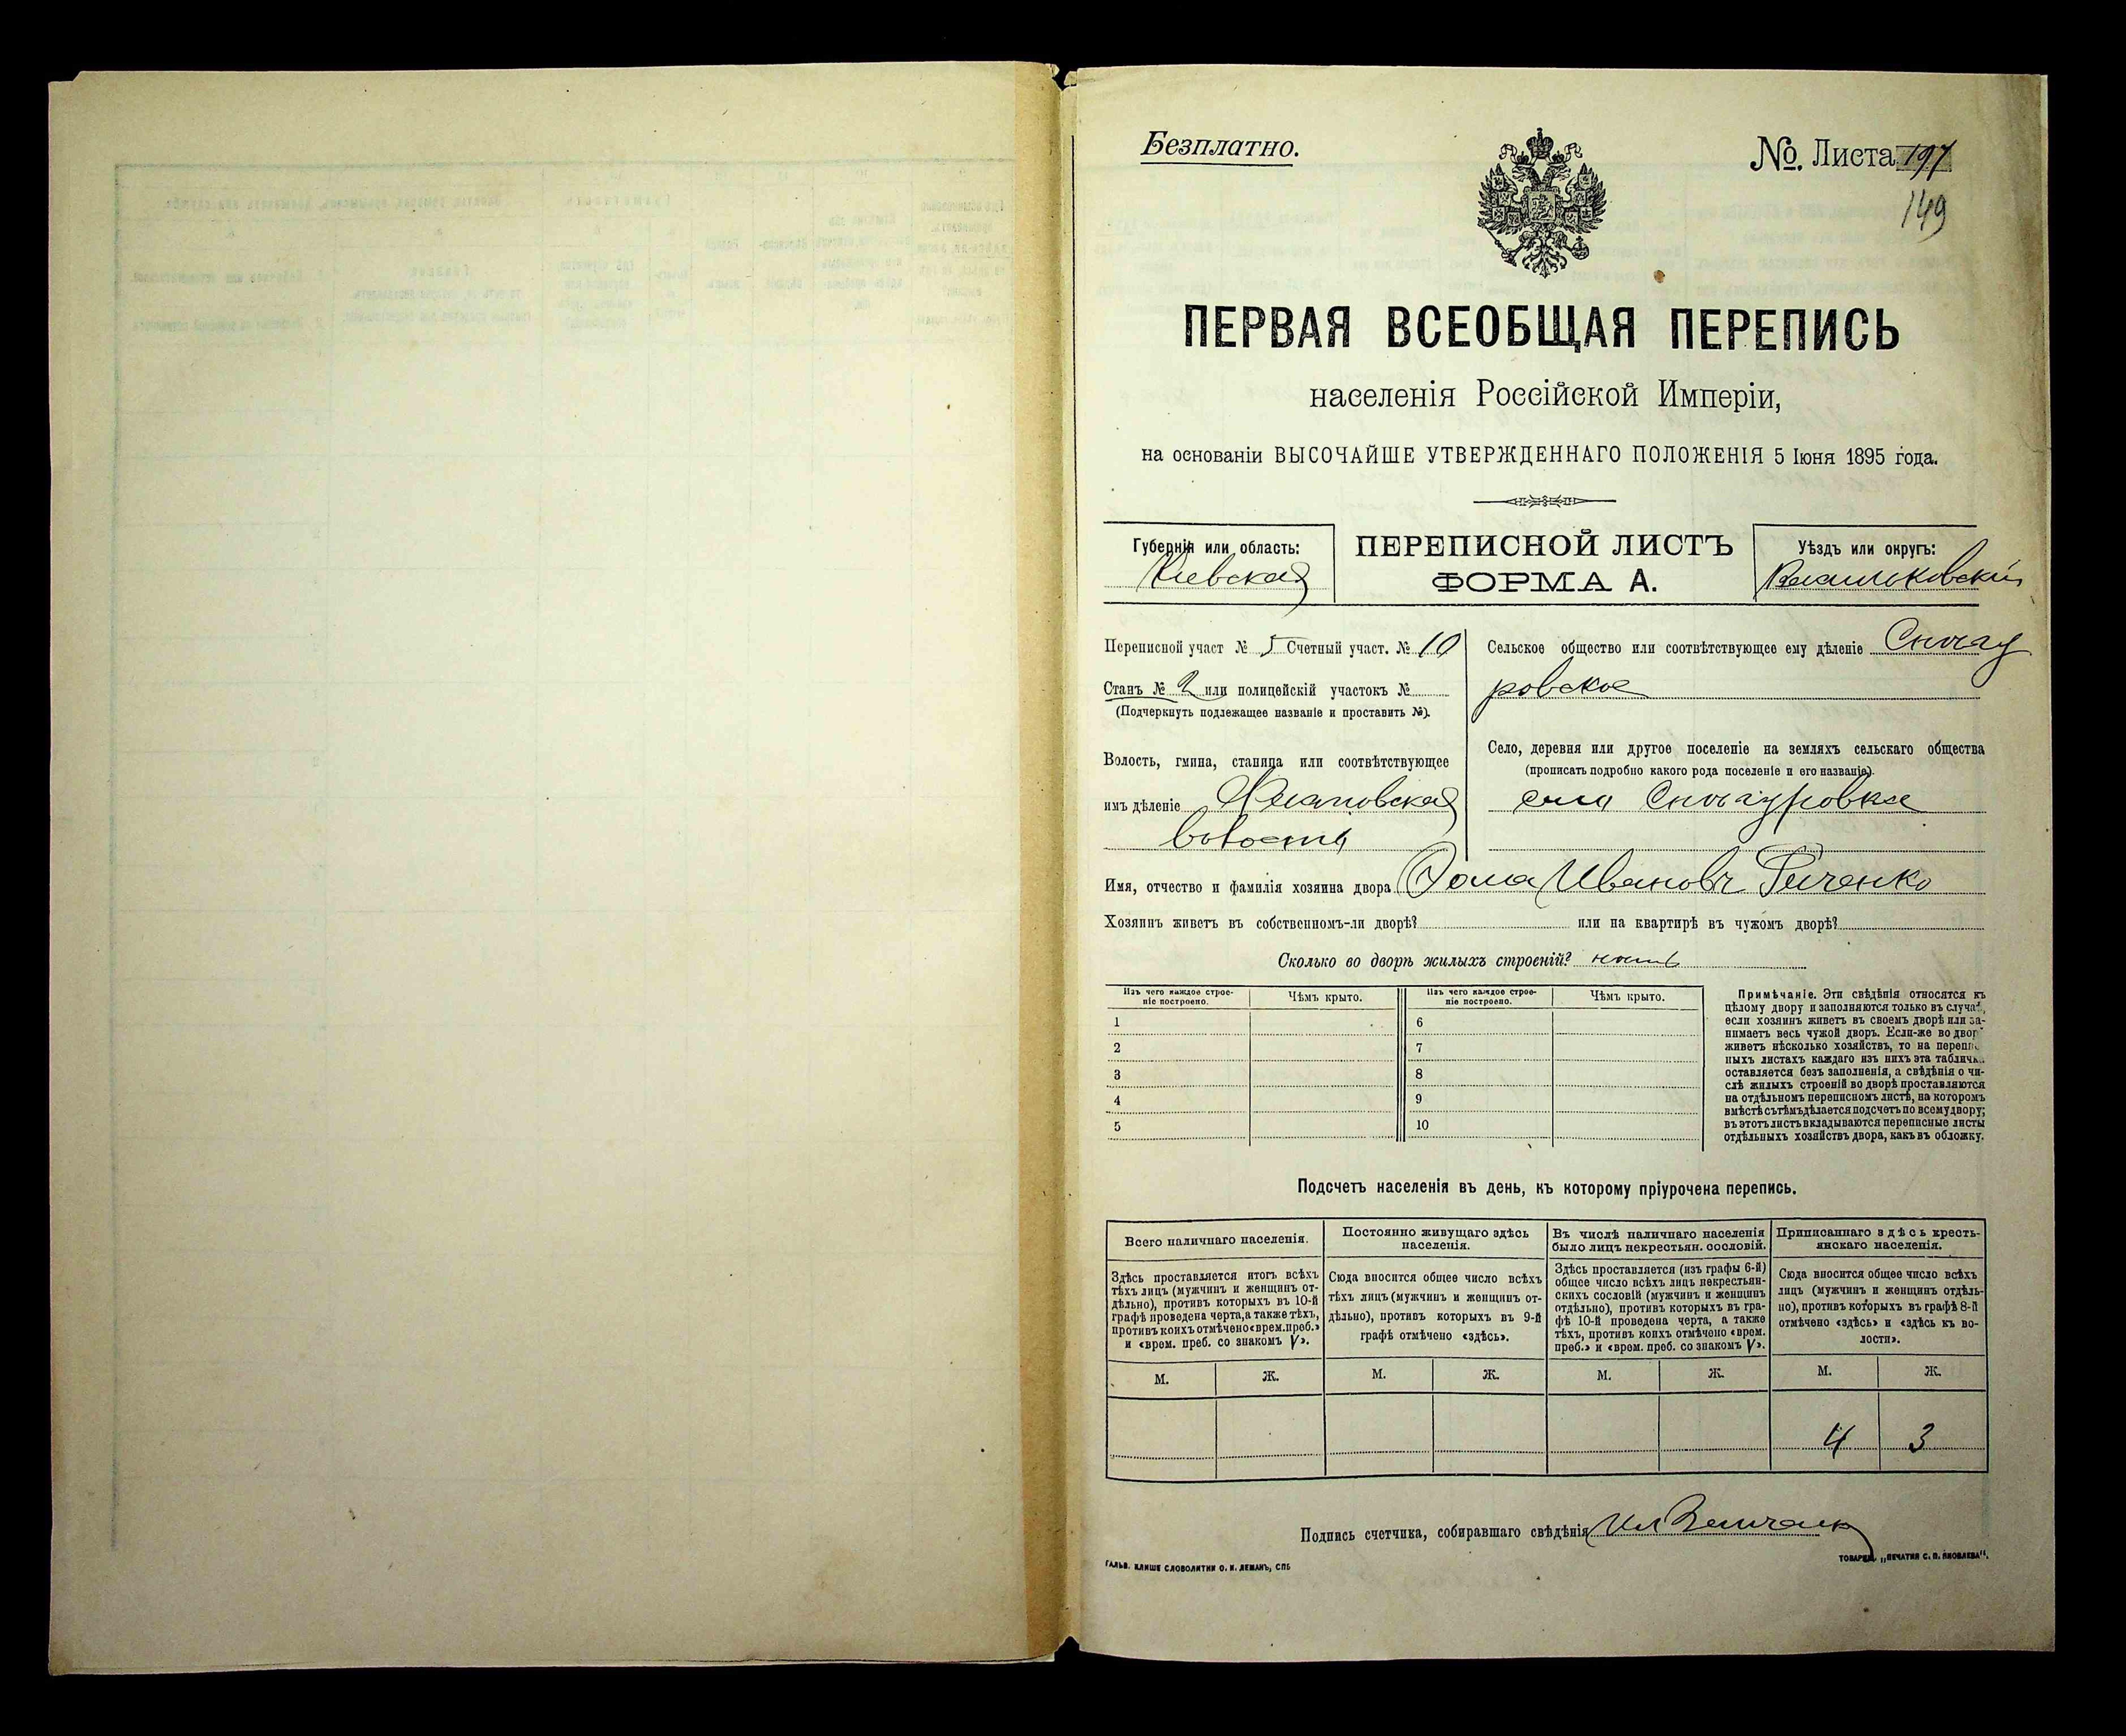 Безплатно.
№. Листа 197
149
ПЕРВАЯ ВСЕОБЩАЯ ПЕРЕПИСЬ
населенія Россійской Имперіи,
на основаніи ВЫСОЧАЙШЕ УТВЕРЖДЕННАГО ПОЛОЖЕНІЯ 5 Іюня 1895 года.
Губернія или область:
Кіевская
ПЕРЕПИСНОЙ ЛИСТЪ
ФОРМА А.
Уѣздъ или округъ:
Переписной участ № 5 Счетный участ. № 10
Станъ № 2 или полицейскій участокъ №
(Подчеркнуть подлежащее названіе и проставить №).
Волость, гмина, станица или соотвѣтствующее
имъ дѣленіе
волость
Сельское общество или соотвѣтствующее ему дѣленіе Снигу
ровское
Село, деревня или другое поселеніе на земляхъ сельскаго общества
(прописать подробно какого рода поселеніе и его названіе).
село Снигуровка
Имя, отчество и фамилія хозяина двора Фома Ивановъ
Хозяинъ живетъ въ собственномъ-ли дворѣ? или на квартирѣ въ чужомъ дворѣ?
Сколько во дворѣ жилыхъ строеній?
Изъ чего каждое строе-
ніе построено.
Чѣмъ крыто.
Изъ чего каждое строе-
ніе построено.
Чѣмъ крыто.
1 6
2 7
3 8
4 9
5 10
Примѣчаніе. Эти свѣдѣнія относятся къ
цѣлому двору и заполняются только въ случаѣ,
если хозяинъ живетъ въ своемъ дворѣ или за-
нимаетъ весь чужой дворъ. Если-же во двор
живетъ нѣсколько хозяйствъ, то на перепи
ныхъ листахъ каждаго изъ нихъ эта табличка
оставляется безъ заполненія, а свѣдѣнія о чи-
слѣ жилыхъ строеній во дворѣ проставляются
на отдѣльномъ переписномъ листѣ, на которомъ
вмѣстѣ съ тѣмъ дѣлается подсчетъ по всему двору;
въ этотъ листъ вкладываются переписные листы
отдѣльныхъ хозяйствъ двора, какъ въ обложку.
Подсчетъ населенія въ день, къ которому пріурочена перепись.
Всего наличнаго населенія.
Здѣсь проставляется итогъ всѣхъ
тѣхъ лицъ (мужчинъ и женщинъ от-
дѣльно), противъ которыхъ въ 10-й
графѣ проведена черта, а также тѣхъ,
противъ коихъ отмѣчено «врем. преб.»
и «врем. преб. со знакомъ V».
Постоянно живущаго здѣсь
населенія.
Сюда вносится общее число всѣхъ
тѣхъ лицъ (мужчинъ и женщинъ от-
дѣльно), противъ которыхъ въ 9-й
графѣ отмѣчено «здѣсь».
Въ числѣ наличнаго населенія
было лицъ некрестьян. сословій.
Здѣсь проставляется (изъ графы 6-й)
общее число всѣхъ лицъ некрестьян-
скихъ сословій (мужчинъ и женщинъ
отдѣльно), противъ которыхъ въ гра-
фѣ 10-й проведена черта, а также
тѣхъ, противъ коихъ отмѣчено «врем.
преб.» и «врем. преб. со знакомъ V».
Приписаннаго здѣсь кресть-
янскаго населенія.
Сюда вносится общее число всѣхъ
лицъ (мужчинъ и женщинъ отдѣль-
но), противъ которыхъ въ графѣ 8-й
отмѣчено «здѣсь» и «здѣсь къ во-
лости».
М. Ж. М. Ж. М. Ж. М. Ж.
4 3
Подпись счетчика, собиравшаго свѣдѣнія
ГАЛЬВ. КЛИШЕ СЛОВОЛИТНИ О. И. ЛЕМАНЪ, СПБ
ТОВАРИЩ. „ПЕЧАТНЯ С. П. ЯКОВЛЕВА".